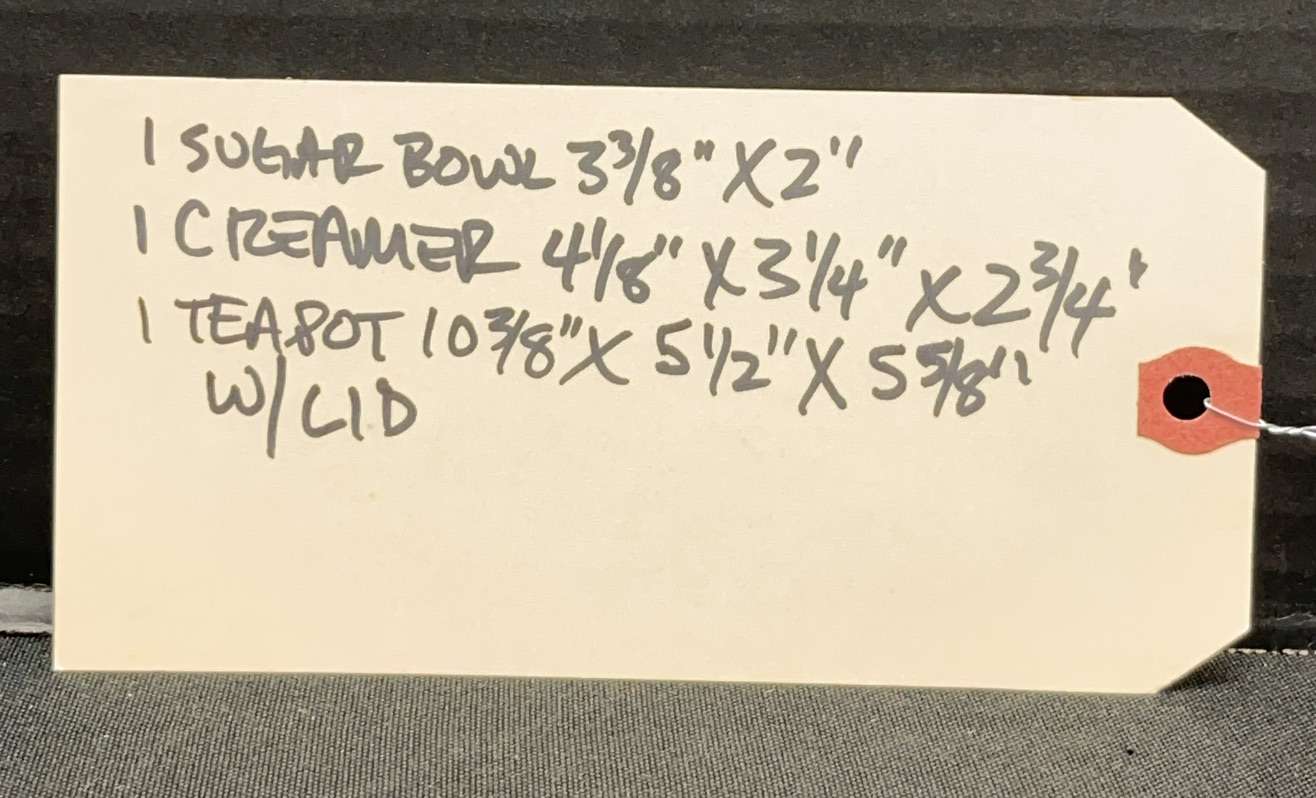 1 SUGAR BOWL 3 3/8" X 2"
1 CREAMER 4 1/8" X 3 1/4" X 2 3/4'
1 TEAPOT 10 3/8" X 5 1/2" X 5 5/8"
W/ LID